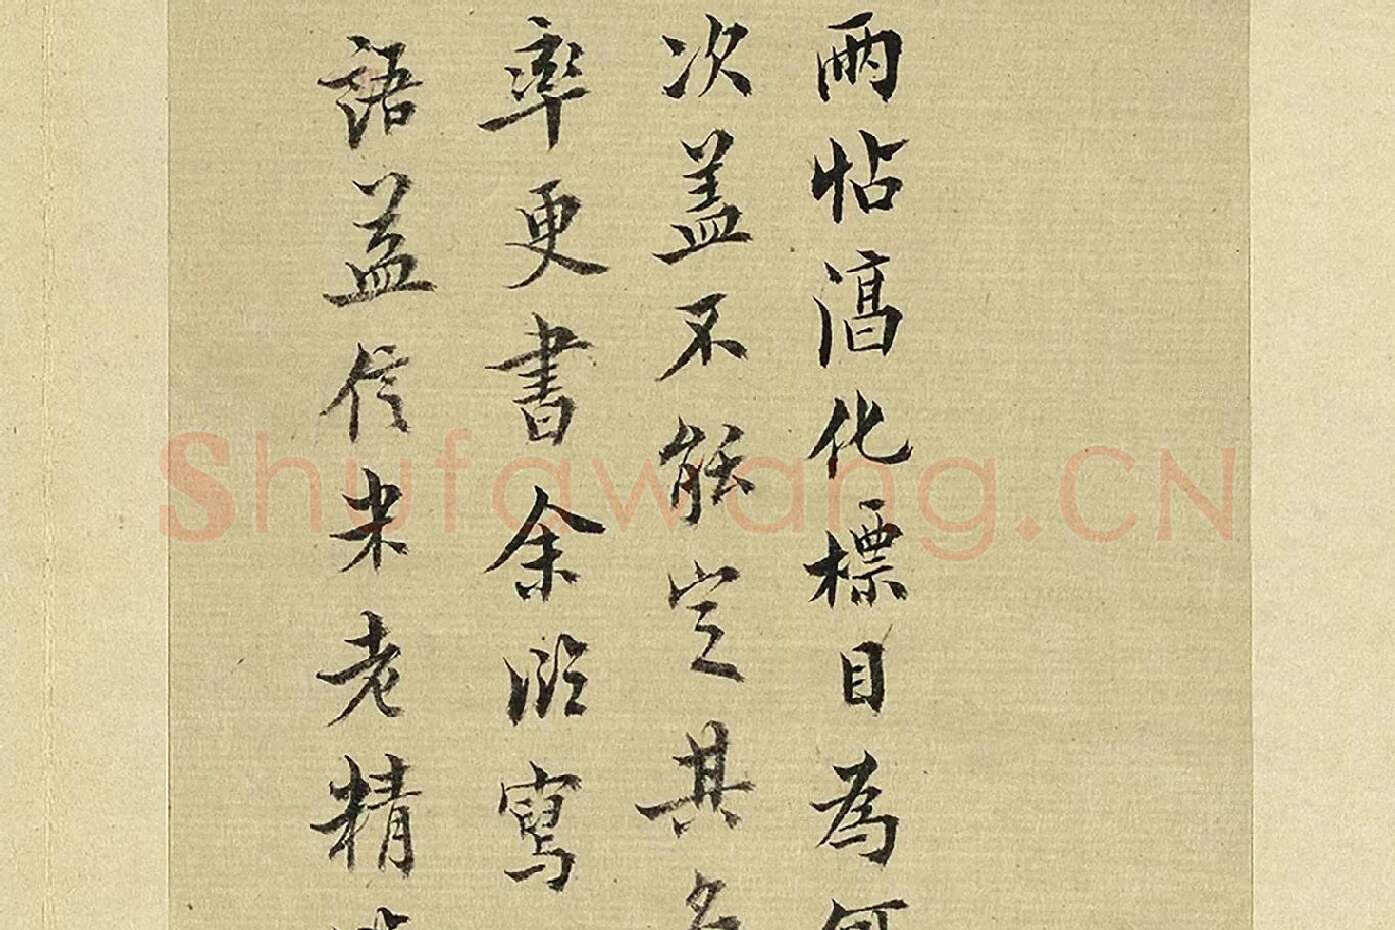 兩帖淳化標目為何
次蓋不能定其名
率更書余臨寫
語益信米老精
Shufawang.CN